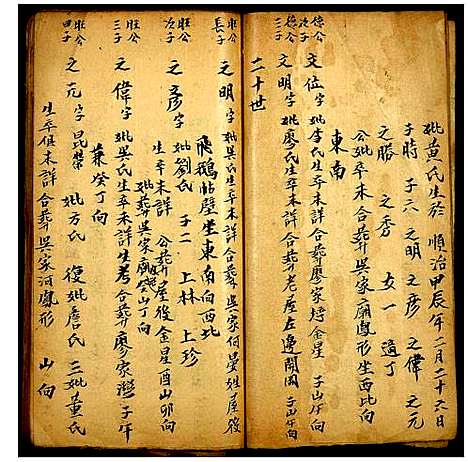 妣黄氏生於 順治甲辰年二月二十六日
子時 子六 之明 之彦 之偉 之元
之勝 之秀 女一 適丁
公妣卒未詳合葬吳家廟鳳形坐西北向
東南
德公次子 文位 字 妣李氏生卒未詳合葬廖家 金星 子山午向
德公三子 文明 字 妣廖氏生卒未詳合葬老屋左邊開園 子山午向
二十世
旺公長子 之明 字 妣吳氏生卒未詳合葬吳家何晏姓屋後
飛鵝帖壁坐東南向西北
旺公次子 之彦 字 妣劉氏 子二 上林 上珍
生卒未詳 公葬屋後金星酉山卯向
妣葬吳家廟 山丁向
旺公三子 之偉 字 妣吳氏生卒未詳生考合葬廖家灣子午
兼癸丁向
旺公四子 之元 字 昆 妣方氏 復妣詹氏 三妣董氏
生卒俱未詳合葬吳家河鳳形 山 向